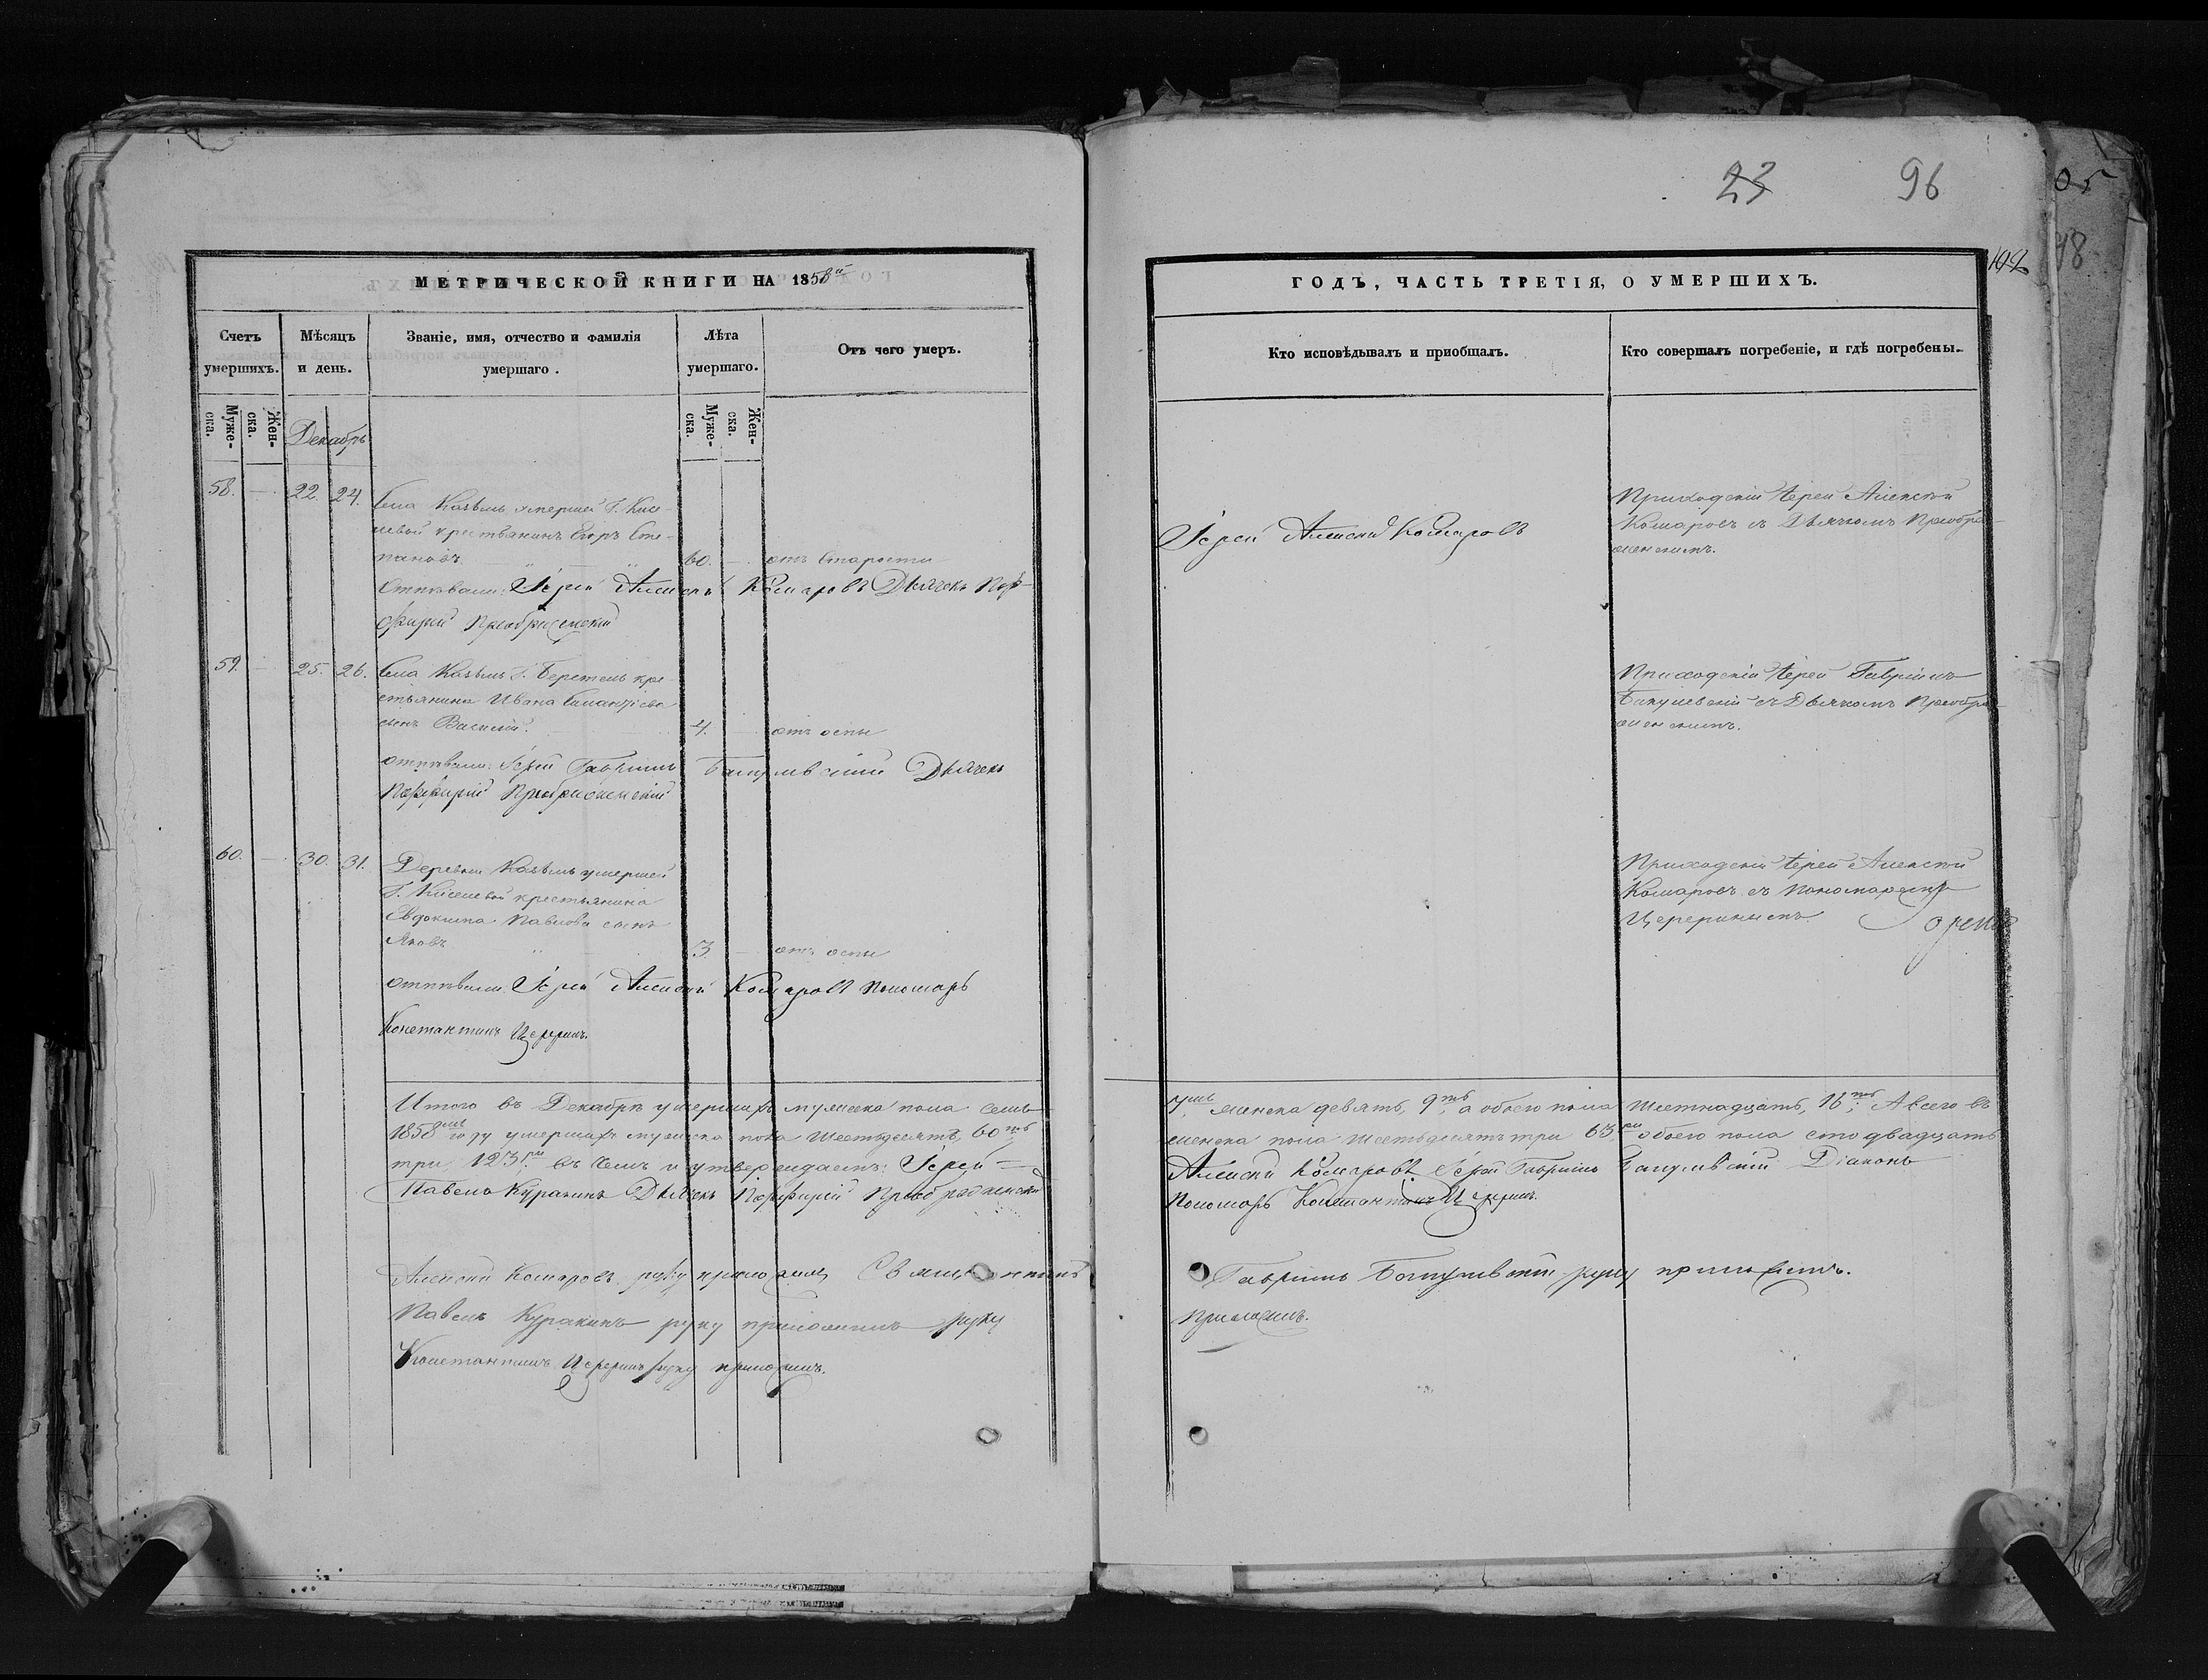 23 96
05
98
192
МЕТРИЧЕСКОЙ КНИГИ НА 1858й
Счетъ умершихъ.
Мѣсяцъ и день.
Званіе, имя, отчество и фамилія умершаго.
Лѣта умершаго.
Отъ чего умеръ.
Муже-ска.
Жен-ска.
Декабрь
Муже-ска.
Жен-ска.
58. — 22. 24. Села умершей Г. Кисе-
левой крестьянинъ Егоръ Сте-
пановъ. 60. — отъ старости
Отпѣвали: Іерей Алексѣй Комаровъ Дьячекъ Пор-
фирій Преображенскій
59. — 25. 26. Села Г. кре-
стьянина Ивана
сынъ Василій. 4. — отъ оспы
отпѣвали: Іерей Гавріилъ Дьячекъ
Порфирій Преображенскій
60. — 30. 31. Деревни умершей
Г. Киселевой крестьянина
Евдокима Павлова сынъ
Яковъ 3 — отъ оспы
отпѣвали Іерей Алексѣй Комаровъ Пономарь
Константинъ Церерин.
Итого въ Декабрѣ умершихъ мужеска пола семь
1858мъ году умершихъ мужеска пола шестьдесятъ, 60тъ
три, 123ри въ чемъ и утверждаемъ: Іерей =
Павелъ Куракинъ Дьячекъ Порфирій Преображенскій
Алексѣй Комаровъ руку приложилъ Священникъ
Павелъ Куракинъ руку приложилъ руку
Константинъ Церерин руку приложилъ.
ГОДЪ, ЧАСТЬ ТРЕТІЯ, О УМЕРШИХЪ.
Кто исповѣдывалъ и пріобщалъ.
Кто совершалъ погребеніе, и гдѣ погребены.
Іерей Алексѣй Комаровъ
Приходскій Іерей Алексѣй
Комаровъ съ Дьячкомъ Преобра-
женскимъ.
Приходскій Іерей Гавріилъ
съ Дьячкомъ Преобра-
женскимъ.
Приходскій Іерей Алексѣй
Комаровъ съ Пономаремъ
Церериным
7мь женска девять, 9ть а обоего пола шестнадцать, 16ть; А всего въ
женска пола шестьдесятъ три 63ри обоего пола сто двадцать
Алексѣй Комаровъ Іерей Гавріилъ Діаконъ
Пономарь Константинъ Церерин.
Гавріилъ руку приложилъ.
приложилъ.